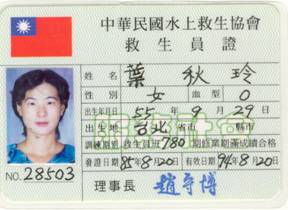 中華民國水上救生協會
救生員證
姓名 葉秋玲
性別 女 血型 O
出生年月日 55年9月29日
出生地 台北 省市 縣市
訓練期別 救生員班780期修業期滿成績合格
發證日期85年8月20日 有效日期94年8月20日
NO.28503
理事長 趙守博